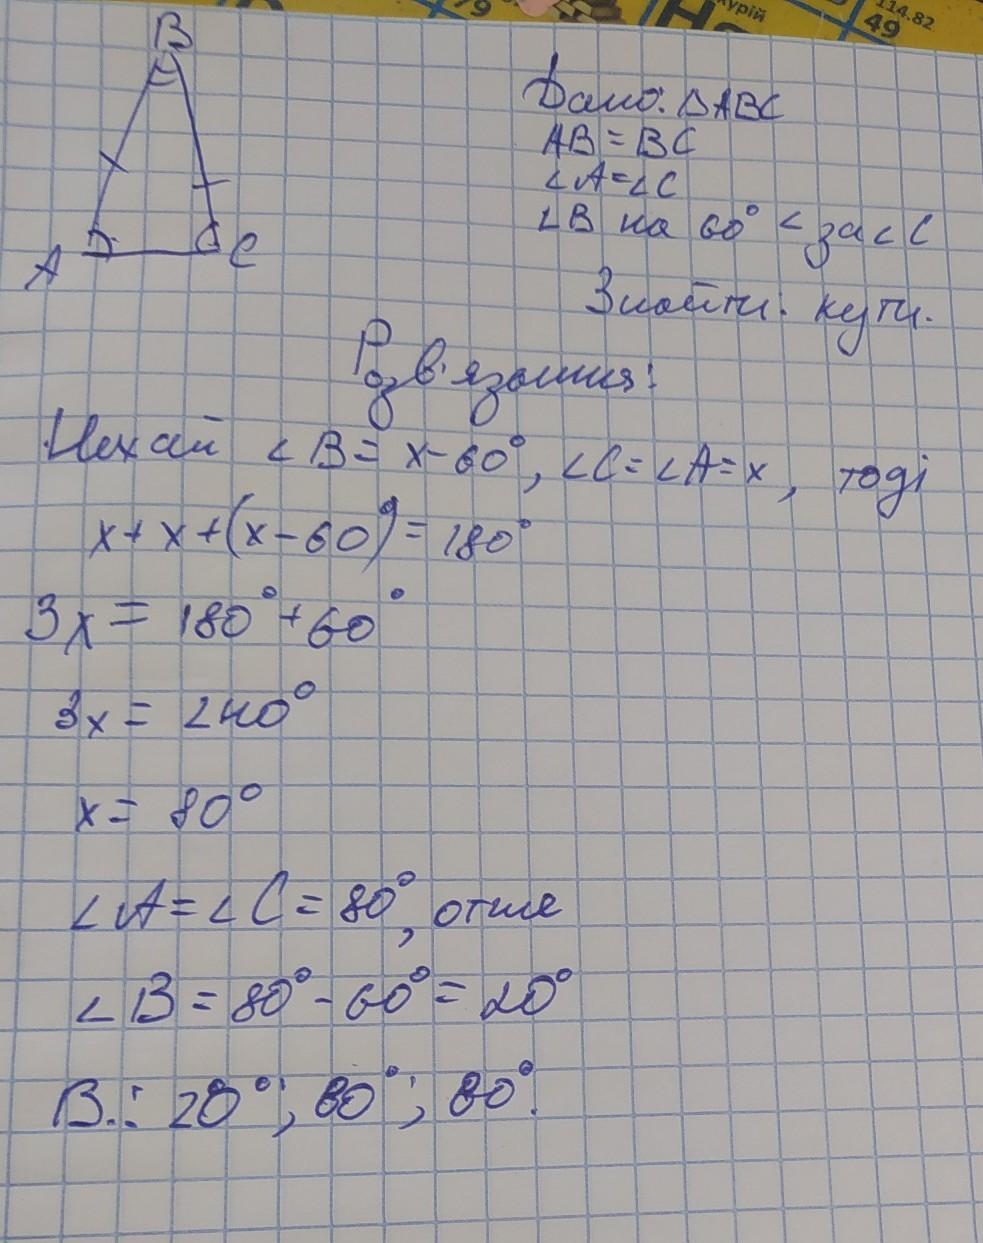 курій
114.82
79
49
На
B
A
C
Дано: ΔABC
AB = BC
∠A = ∠C
∠B на 60° < за ∠C
Знайти: кути.
Розв'язання:
Нехай ∠B = x-60°, ∠C = ∠A = x, тоді
x + x + (x - 60°) = 180°
3x = 180° + 60°
3x = 240°
x = 80°
∠A = ∠C = 80°, отже
∠B = 80° - 60° = 20°
В.: 20°; 80°; 80°.